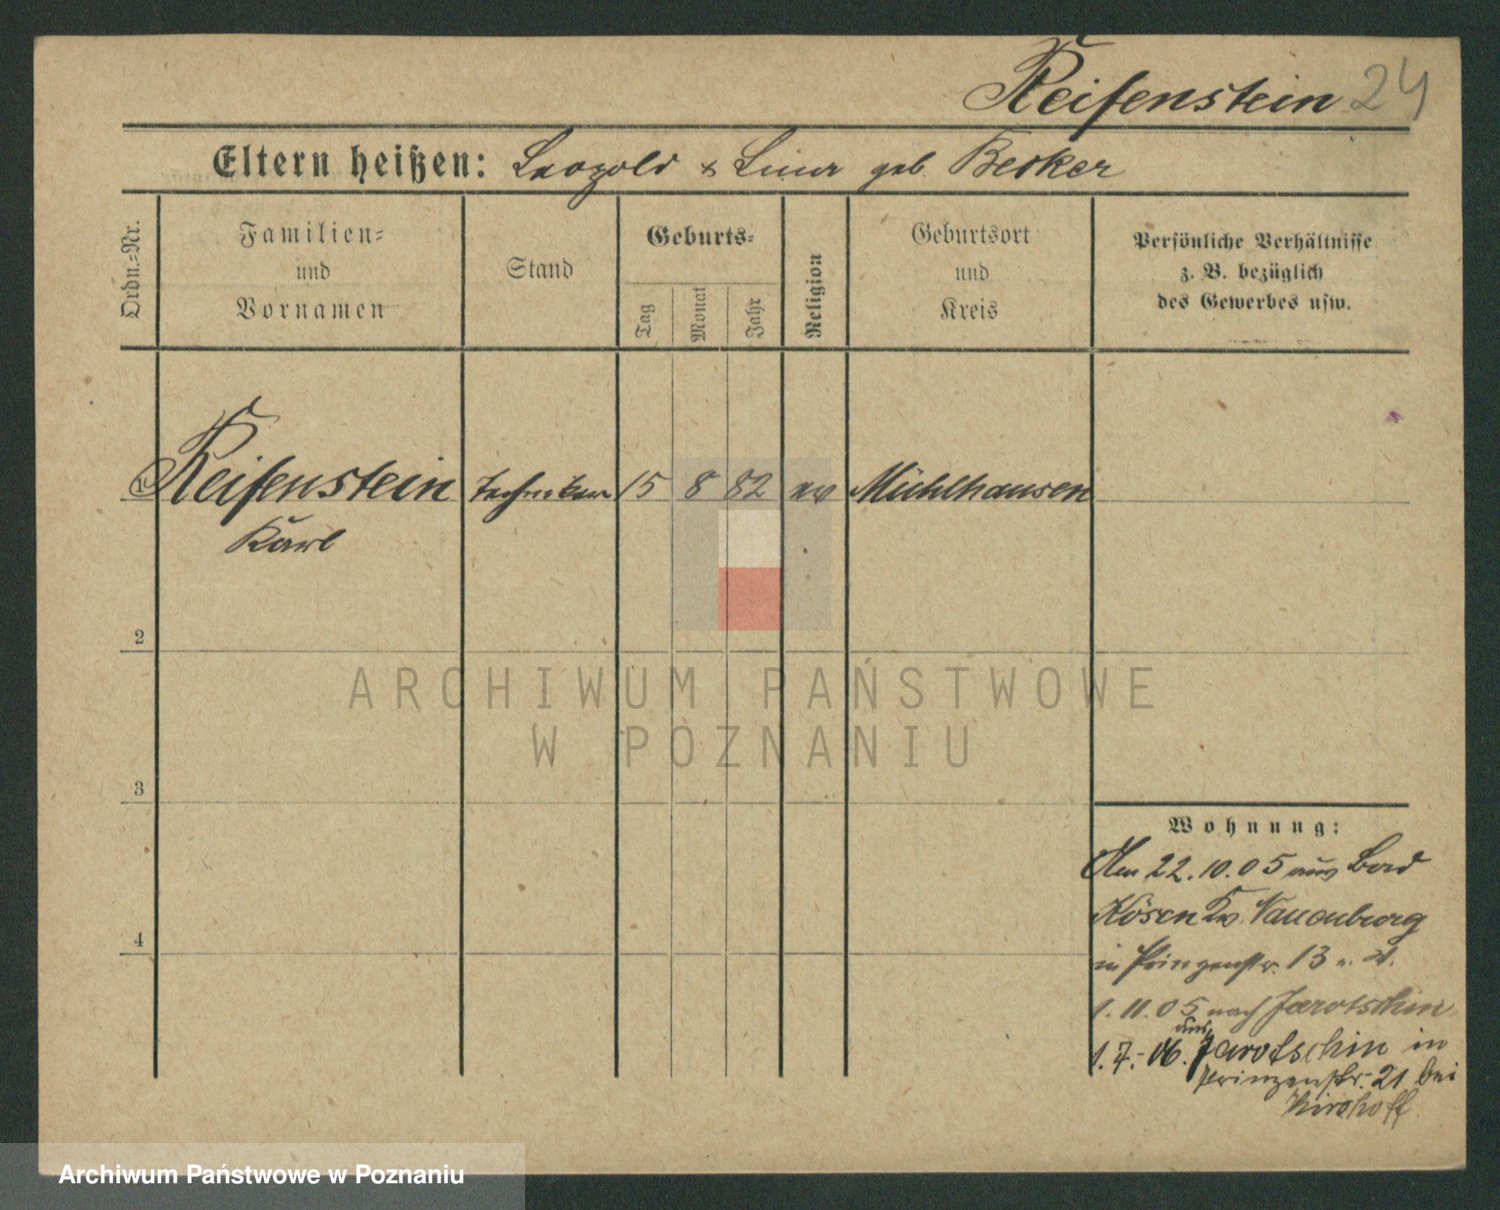 Reifenstein 24
Eltern heißen: Leopold & Lina geb. Becker
Ordn.-Nr.
Familien-
und
Vornamen
Stand
Geburts-
Tag
Monat
Jahr
Religion
Geburtsort
und
Kreis
Persönliche Verhältnisse
z. B. bezüglich
des Gewerbes usw.
Reifenstein Techniker 15 8 82 ev Mühlhausen
Karl
2
3
4
ARCHIWUM PAŃSTWOWE
W POZNANIU
Wohnung:
Am 22.10.05 aus Bad
Kösen Kr. Naumburg
in Prinzenstr. 13
1.11.05 nach Jarotschin
1.7.-06. aus Jarotschin in
Prinzenstr. 21 bei
Kirchhoff
Archiwum Państwowe w Poznaniu